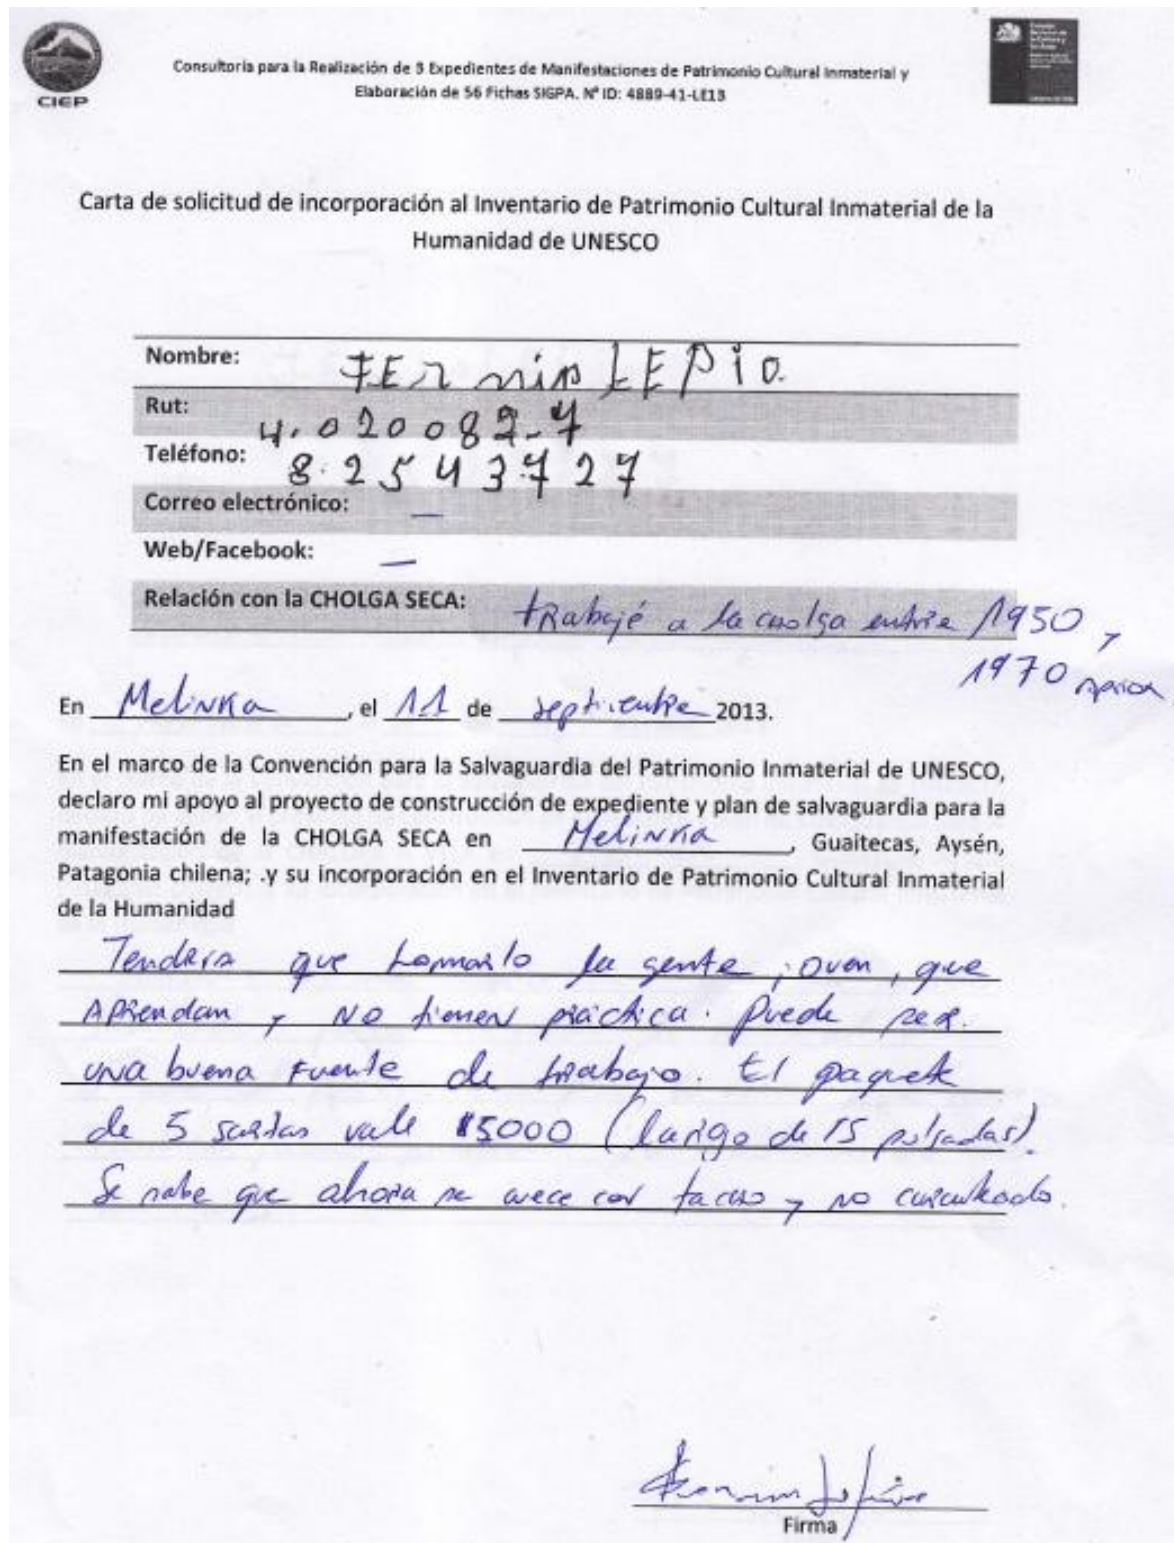 CIEP
Consultoría para la Realización de 5 Expedientes de Manifestaciones de Patrimonio Cultural Inmaterial y
Elaboración de 56 Fichas SIGPA. Nº ID: 4889-41-LE13
Carta de solicitud de incorporación al Inventario de Patrimonio Cultural Inmaterial de la
Humanidad de UNESCO
Nombre: FERmin LEPIO.
Rut: 4.020082-7
Teléfono: 8.2543727
Correo electrónico: —
Web/Facebook: —
Relación con la CHOLGA SECA: trabajé a la cholga entre 1950 y
1970
En Melinka, el 11 de septiembre 2013.
En el marco de la Convención para la Salvaguardia del Patrimonio Inmaterial de UNESCO,
declaro mi apoyo al proyecto de construcción de expediente y plan de salvaguardia para la
manifestación de la CHOLGA SECA en Melinka, Guaitecas, Aysén,
Patagonia chilena; .y su incorporación en el Inventario de Patrimonio Cultural Inmaterial
de la Humanidad
Tendria que tomarlo la gente joven, que
Aprendan y no tienen práctica. Puede ser
una buena fuente de trabajo. El paquete
de 5 sartas vale $5000 (largo de 15 pulgadas).
Se sabe que ahora se cuece con tacho y no curanteado.
Firma